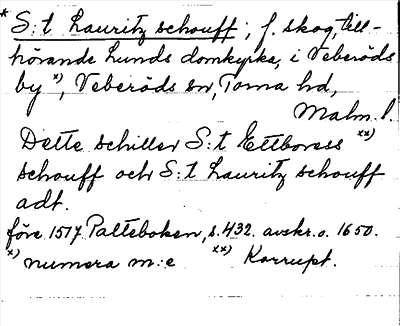 * S:t Lauritz schouff; f. skog, till-
hörande Lunds domkyrka, i Veberöds
by x), Veberöds sn, Torna hd,
Malm. l.
Dette schiller S:t Ettboress xx)
schouff och S:t Lauritz schouff
adt.
före 1517 Palteboken, s. 432. avskr. o. 1650.
x) numera m:e xx) Korrupt.